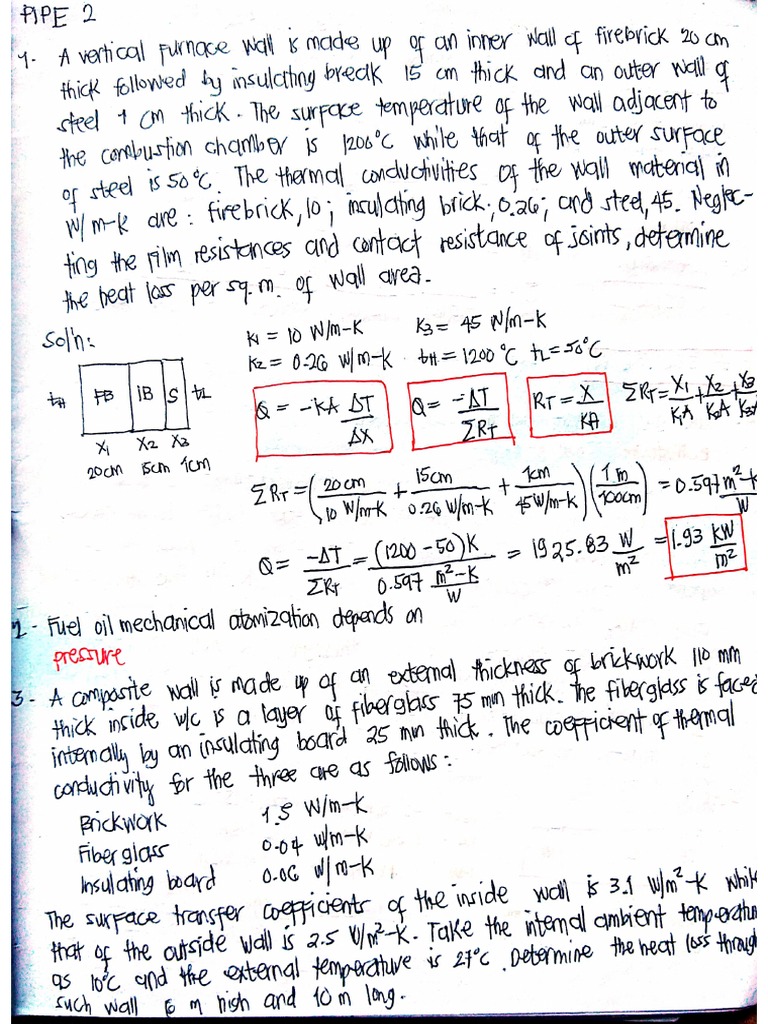 PIPE 2
1. A vertical furnace wall is made up of an inner wall of firebrick 20 cm
thick followed by insulating break 15 cm thick and an outer wall of
steel 1 cm thick. The surface temperature of the wall adjacent to
the combustion chamber is 1200°C while that of the outer surface
of steel is 50°C. The thermal conductivities of the wall material in
W/m-K are: firebrick, 10; insulating brick, 0.26; and steel, 45. Neglec-
ting the film resistances and contact resistance of joints, determine
the heat loss per sq. m. of wall area.
Sol'n:
K1 = 10 W/m-K K3 = 45 W/m-K
K2 = 0.26 W/m-K tH = 1200 °C tL = 50°C
tH FB IB S tL
X1 X2 X3
20cm 15cm 1cm
Q = -KA ΔT/ΔX Q = -ΔT/ΣRT RT = X/KA ΣRT = X1/K1A + X2/K2A + X3/K3A
ΣRT = (20cm/10 W/m-K + 15cm/0.26 W/m-K + 1cm/45W/m-K)(1m/100cm) = 0.597 m²-K/W
Q = -ΔT/ΣRT = (1200-50)K/0.597 m²-K/W = 1925.83 W/m² = 1.93 KW/m²
2 - Fuel oil mechanical atomization depends on
pressure
3 - A composite wall is made up of an external thickness of brickwork 110 mm
thick inside w/c is a layer of fiberglass 75 mm thick. The fiberglass is faced
internally by an insulating board 25 mm thick. The coefficient of thermal
conductivity for the three are as follows:
Brickwork 1.5 W/m-K
Fiberglass 0.04 W/m-K
Insulating board 0.06 W/m-K
The surface transfer coefficients of the inside wall is 3.1 W/m²-K while
that of the outside wall is 2.5 W/m²-K. Take the internal ambient temperature
as 10°C and the external temperature is 27°C. Determine the heat loss through
such wall 6 m high and 10 m long.